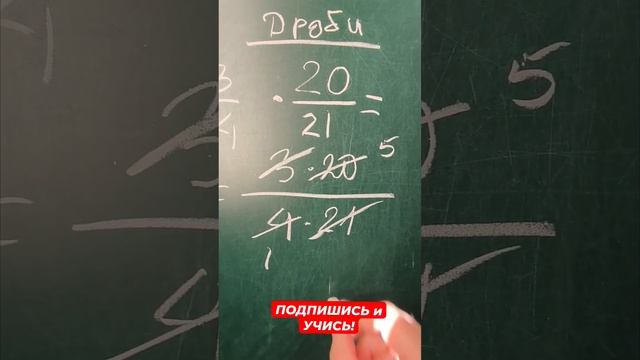 Дроби
3/4 · 20/21 =
= 3·20 5
4·21
1
ПОДПИШИСЬ и
УЧИСЬ!